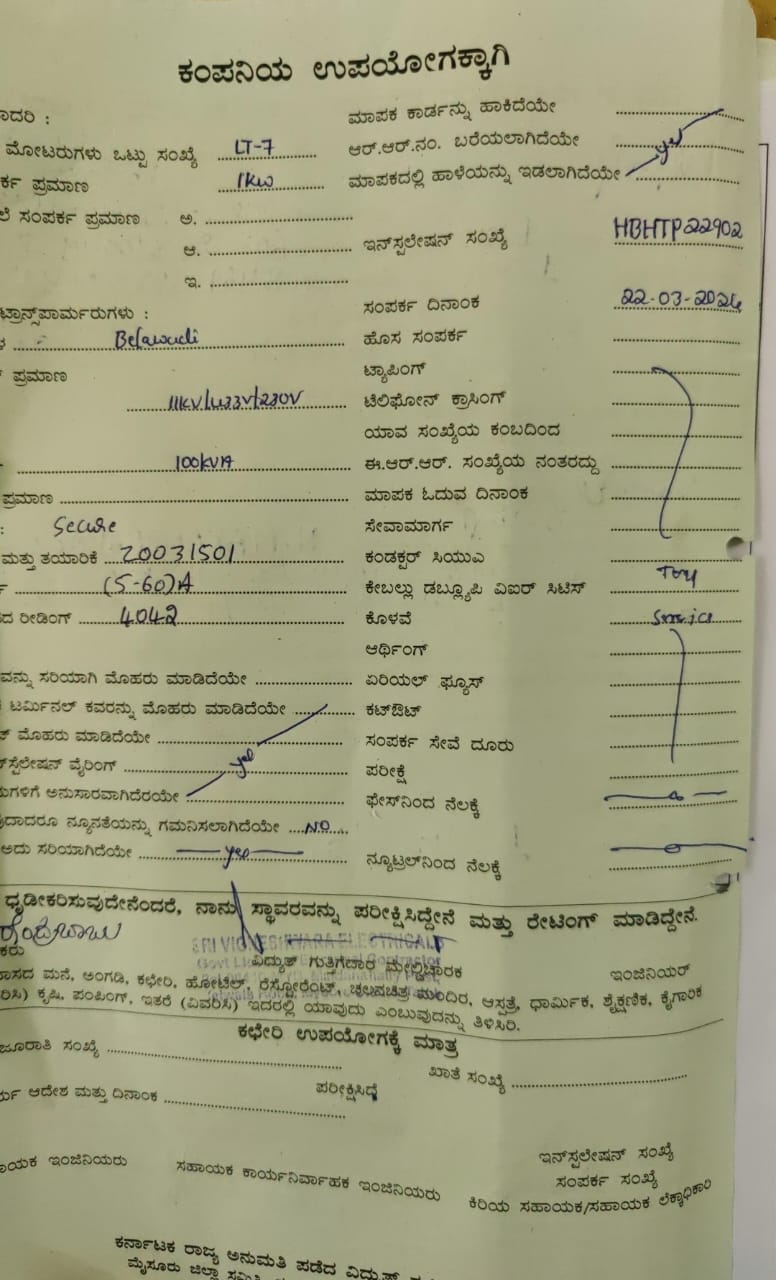 ಕಂಪನಿಯ ಉಪಯೋಗಕ್ಕಾಗಿ
ಾದರಿ : ಮಾಪಕ ಕಾರ್ಡನ್ನು ಹಾಕಿದೆಯೇ
ಮೋಟರುಗಳು ಒಟ್ಟು ಸಂಖ್ಯೆ LT-7 ಆರ್.ಆರ್.ನಂ. ಬರೆಯಲಾಗಿದೆಯೇ yes
ರ್ಕ ಪ್ರಮಾಣ 1KW ಮಾಪಕದಲ್ಲಿ ಹಾಳೆಯನ್ನು ಇಡಲಾಗಿದೆಯೇ
ಲೆ ಸಂಪರ್ಕ ಪ್ರಮಾಣ ಅ.
ಆ. ಇನ್‌ಸ್ಪಲೇಷನ್ ಸಂಖ್ಯೆ HBHTP22902
ಇ.
ಟ್ರಾನ್ಸ್‌ಪಾರ್ಮರುಗಳು : ಸಂಪರ್ಕ ದಿನಾಂಕ 22-03-2024
Belawadi ಹೊಸ ಸಂಪರ್ಕ
ಪ್ರಮಾಣ ಟ್ಯಾಪಿಂಗ್
11KV/433V/230V ಟೆಲಿಫೋನ್ ಕ್ರಾಸಿಂಗ್
ಯಾವ ಸಂಖ್ಯೆಯ ಕಂಬದಿಂದ
100KVA ಈ.ಆರ್.ಆರ್. ಸಂಖ್ಯೆಯ ನಂತರದ್ದು
ಪ್ರಮಾಣ ಮಾಪಕ ಓದುವ ದಿನಾಂಕ
: Secure ಸೇವಾಮಾರ್ಗ
ಮತ್ತು ತಯಾರಿಕೆ 20031501 ಕಂಡಕ್ಟರ್ ಸಿಯುಎ
(5-60)A ಕೇಬಲ್ಲು ಡಬ್ಲ್ಯೂಪಿ ವಿಐರ್ ಸಿಟಿಸ್
ದ ರೀಡಿಂಗ್ 4042 ಕೊಳವೆ
ಆರ್ಥಿಂಗ್
ವನ್ನು ಸರಿಯಾಗಿ ಮೊಹರು ಮಾಡಿದೆಯೇ ಏರಿಯಲ್ ಫ್ಯೂಸ್
ಟರ್ಮಿನಲ್ ಕವರನ್ನು ಮೊಹರು ಮಾಡಿದೆಯೇ ಕಟ್‌ಔಟ್
ಮೊಹರು ಮಾಡಿದೆಯೇ ಸಂಪರ್ಕ ಸೇವೆ ದೂರು
ಸ್ಪೆಲೇಷನ್ ವೈರಿಂಗ್ yes ಪರೀಕ್ಷೆ
ುಗಳಿಗೆ ಅನುಸಾರವಾಗಿದೆರಯೇ ಫೇಸ್‌ನಿಂದ ನೆಲಕ್ಕೆ
ುದಾದರೂ ನ್ಯೂನತೆಯನ್ನು ಗಮನಿಸಲಾಗಿದೆಯೇ NO
ಅದು ಸರಿಯಾಗಿದೆಯೇ yes ನ್ಯೂಟ್ರಲ್‌ನಿಂದ ನೆಲಕ್ಕೆ
ಧೃಡೀಕರಿಸುವುದೇನೆಂದರೆ, ನಾನು ಸ್ಥಾವರವನ್ನು ಪರೀಕ್ಷಿಸಿದ್ದೇನೆ ಮತ್ತು ರೇಟಿಂಗ್ ಮಾಡಿದ್ದೇನೆ.
SRI VIGNESHWARA ELECTRICALS
ಕರು ವಿದ್ಯುತ್ ಗುತ್ತಿಗೆದಾರ ಮೇಲ್ವಿಚಾರಕ ಇಂಜಿನಿಯರ್
ಾಸದ ಮನೆ, ಅಂಗಡಿ, ಕಛೇರಿ, ಹೋಟೆಲ್, ರೆಸ್ಟೋರೆಂಟ್, ಚಲನಚಿತ್ರ ಮಂದಿರ, ಆಸ್ಪತ್ರೆ, ಧಾರ್ಮಿಕ, ಶೈಕ್ಷಣಿಕ, ಕೈಗಾರಿಕ
ರಿಸಿ) ಕೃಷಿ, ಪಂಪಿಂಗ್, ಇತರೆ (ವಿವರಿಸಿ) ಇದರಲ್ಲಿ ಯಾವುದು ಎಂಬುವುದನ್ನು ತಿಳಿಸಿರಿ.
ಕಛೇರಿ ಉಪಯೋಗಕ್ಕೆ ಮಾತ್ರ
ಜೂರಾತಿ ಸಂಖ್ಯೆ ಖಾತೆ ಸಂಖ್ಯೆ
ಆದೇಶ ಮತ್ತು ದಿನಾಂಕ ಪರೀಕ್ಷಿಸಿದೆ
ಇನ್‌ಸ್ಪಲೇಷನ್ ಸಂಖ್ಯೆ
ಾಯಕ ಇಂಜಿನಿಯರು ಸಹಾಯಕ ಕಾರ್ಯನಿರ್ವಾಹಕ ಇಂಜಿನಿಯರು ಸಂಪರ್ಕ ಸಂಖ್ಯೆ
ಕಿರಿಯ ಸಹಾಯಕ/ಸಹಾಯಕ ಲೆಕ್ಕಾಧಿಕಾರಿ
ಕರ್ನಾಟಕ ರಾಜ್ಯ ಅನುಮತಿ ಪಡೆದ ವಿದ್ಯುತ್
ಮೈಸೂರು ಜಿಲ್ಲಾ ಸಮಿತಿ